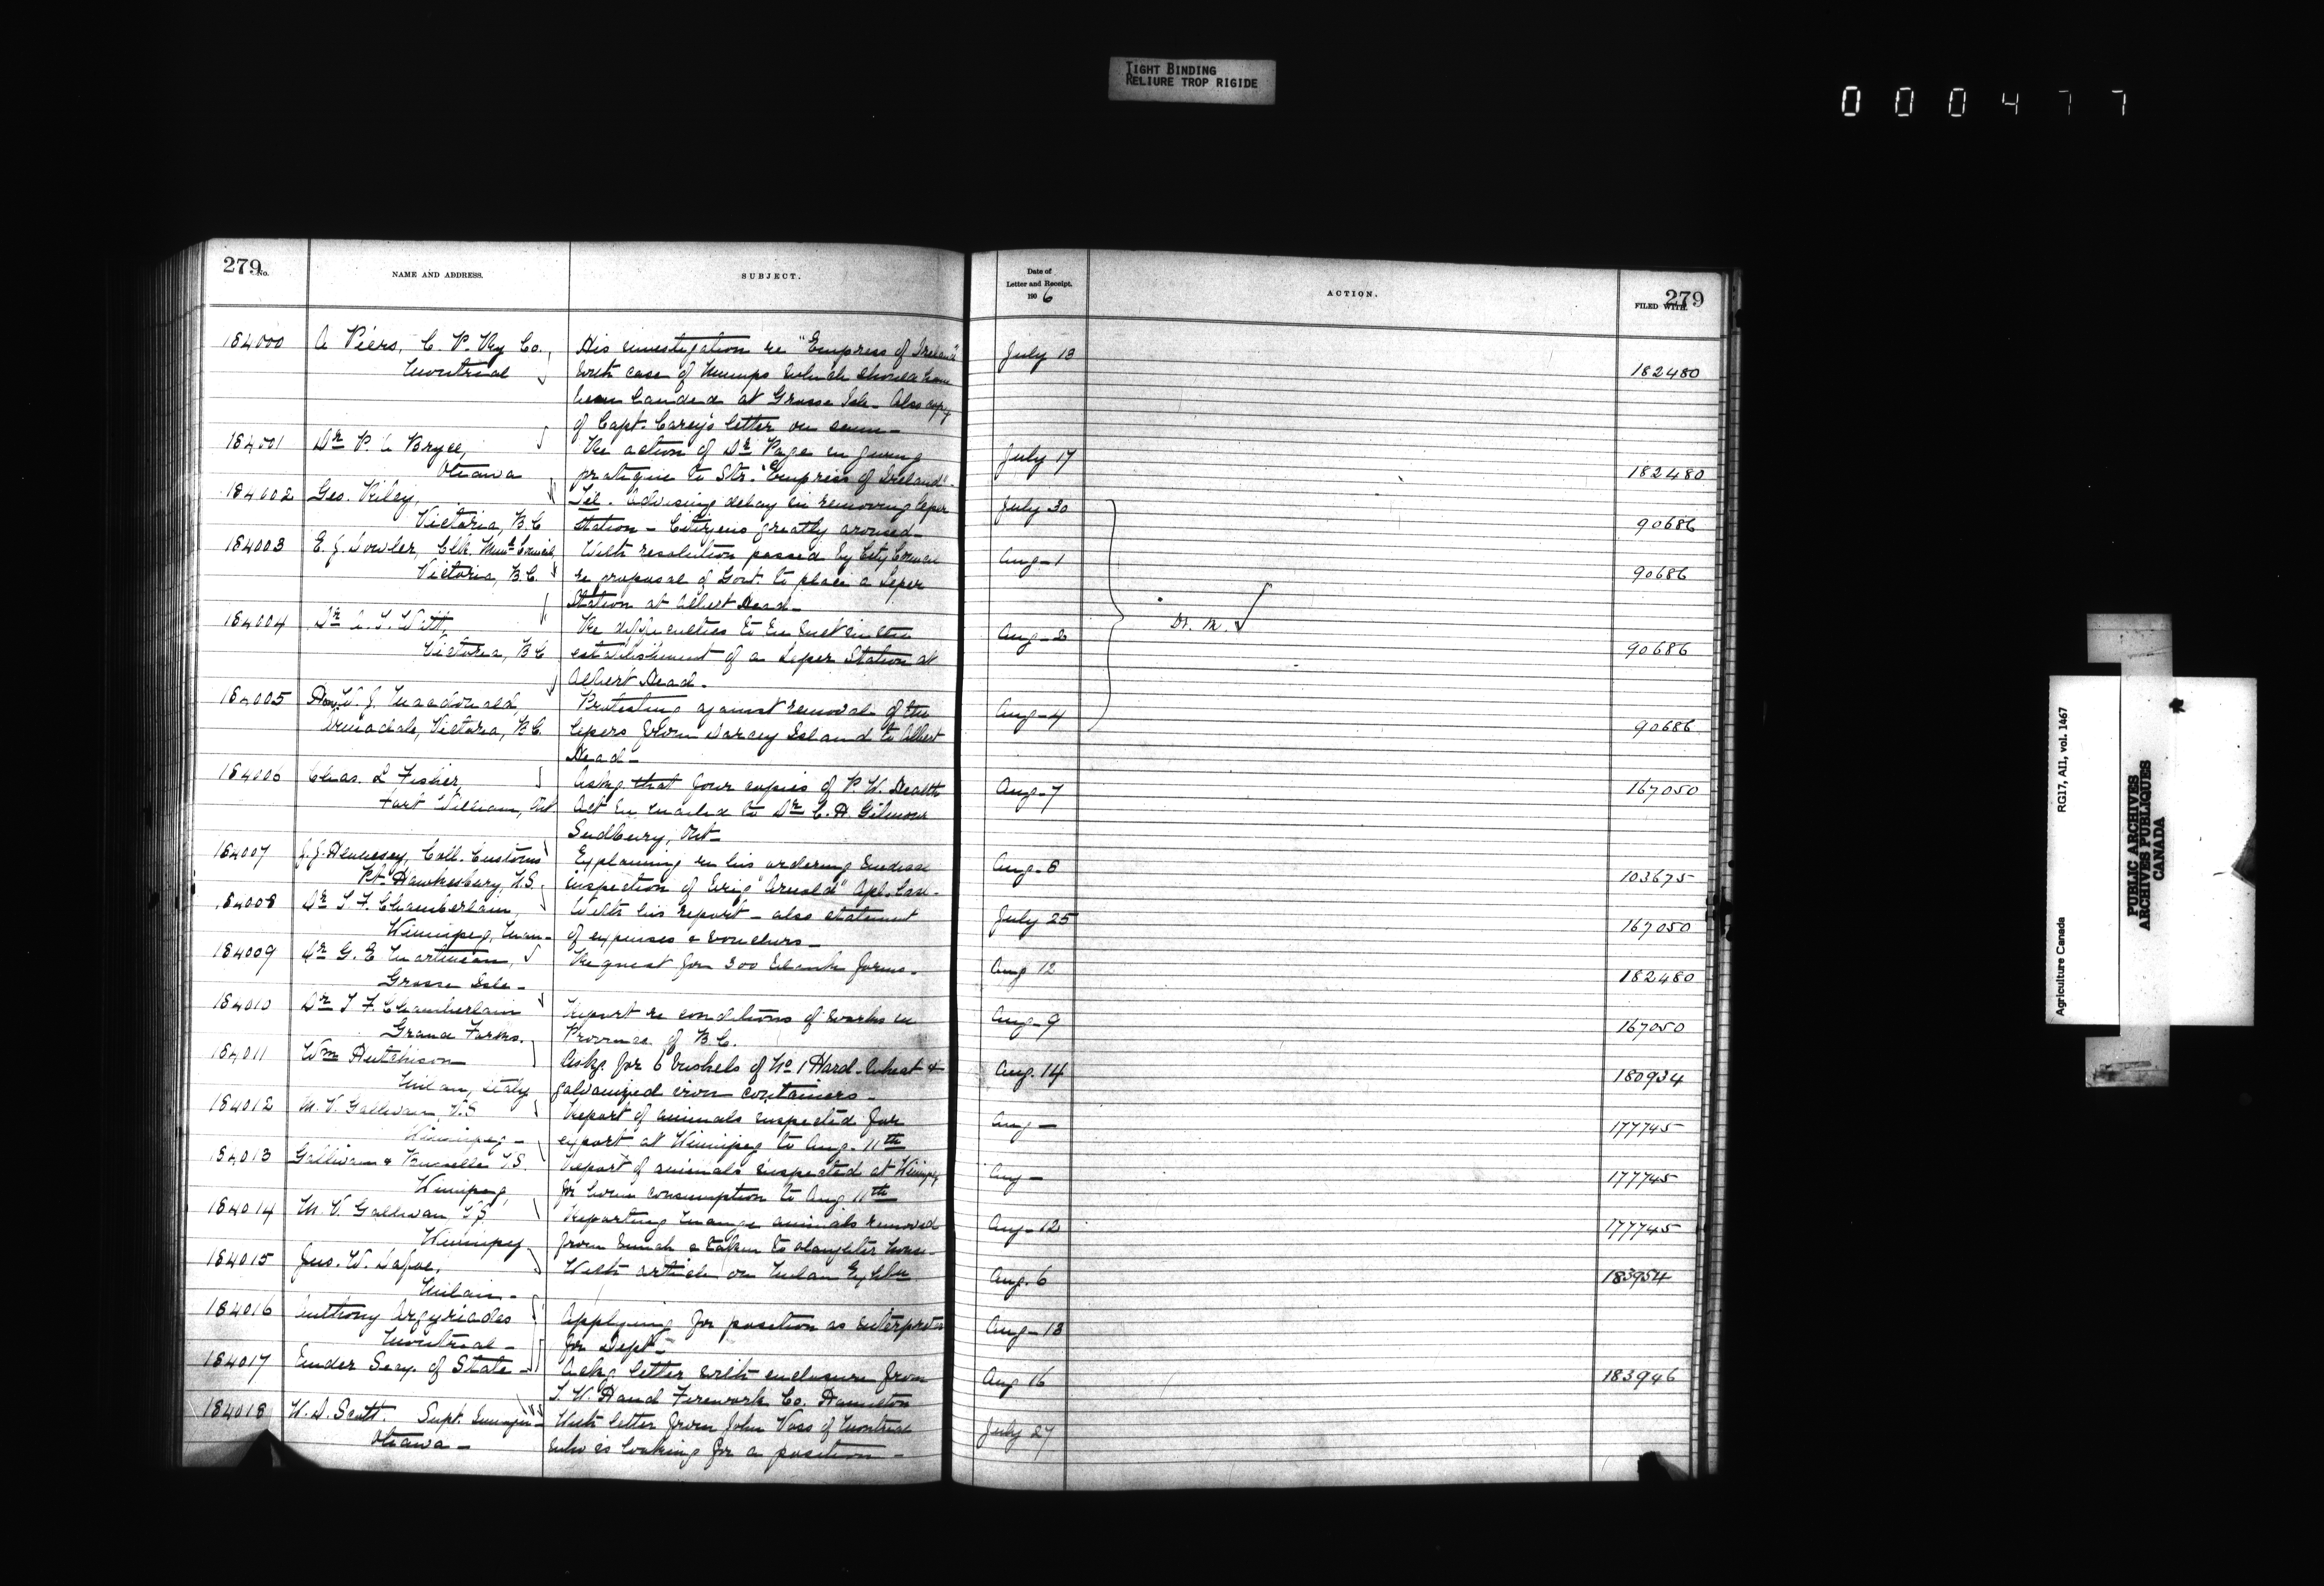 TIGHT BINDING
RELIURE TROP RIGIDE
000477
279
No.
NAME AND ADDRESS.
SUBJECT.
Date of
Letter and Receipt.
1906
ACTION.
279
FILED WITH.
184000 A Piers, C. P. Ry Co., His investigation re "Empress of Ireland" July 13
Montreal with case of Mumps which should have 182480
been landed at Grosse Isle - Also copy
of Capt. Carey's letter on same -
184001 Dr P. A Bryce, Re action of Dr Page in giving July 17
Ottawa pratique to Str. "Empress of Ireland" - 182480
184002 Geo. Riley, Tel. Advising delay in removing leper July 30
Victoria, B.C station - Citizens greatly aroused - 90686
184003 E. J. Dowler, Clk. Munl Council, With resolution passed by City Council Aug - 1
Victoria, B.C. re proposal of Govt. to place a Leper 90686
Station at Albert Head -
184004 Dr A. T. Watt Re difficulties to be met in the Aug - 2
Victoria, B.C establishment of a Leper Station at 90686
Albert Head -
Dr. M.
184005 Hon. W. J. Macdonald, Protesting against removal of the Aug - 4
Armadale, Victoria, B.C. lepers from Darcey Island to Albert 90686
Head -
184006 Chas. L Fisher, Askg. that four copies of P. W. Health Aug - 7 167050
Fort William, Ont Act be mailed to Dr C. H. Gilmour
Sudbury, Ont -
184007 J. J. Hennesey, Coll. Customs Explaining re his ordering medical Aug - 8
Pt. Hawkesbury, N.S. inspection of brig "Arnold" Apl. last - 103675
184008 Dr T. F. Chamberlain, With his report - also statement July 25
Winnipeg, Man - of expenses & vouchers - 167050
184009 Dr G. E Martineau, Request for 300 blank forms - Aug 12
Grosse Isle - 182480
184010 Dr T F. Chamberlain Report re conditions of works in Aug - 9
Grand Forks. Province of B.C. 167050
184011 Wm Hutchison Askg. for 6 bushels of No 1 Hard Wheat & Aug. 14
Milan, Italy galvanized iron containers - 180934
184012 M. V. Gallivan, V.S Report of animals inspected for Aug -
Winnipeg - export at Winnipeg to Aug. 11th 177745
184013 Gallivan & V.S. Report of animals inspected at Winnipeg Aug -
Winnipeg, for home consumption to Aug 11th 177745
184014 M. V. Gallivan, V.S Reporting mange animals removed Aug - 12
Winnipeg from & taken to slaughter house - 177745
184015 Jno. W. Dafoe, With article on Milan Exhbn Aug. 6
Milan - 183954
184016 Anthony Argyriades Applying for position as interpreter Aug - 13
Montreal - for Dept -
184017 Under Secy. of State - Ackg. letter with enclosure from Aug 16 183946
T. W. Hand Firework Co. Hamilton
184018 W. D. Scott. Supt. Immign - With letter from John Voss of Montreal July 27
Ottawa - who is looking for a position -
Agriculture Canada
RG17, AII, vol. 1467
PUBLIC ARCHIVES
ARCHIVES PUBLIQUES
CANADA